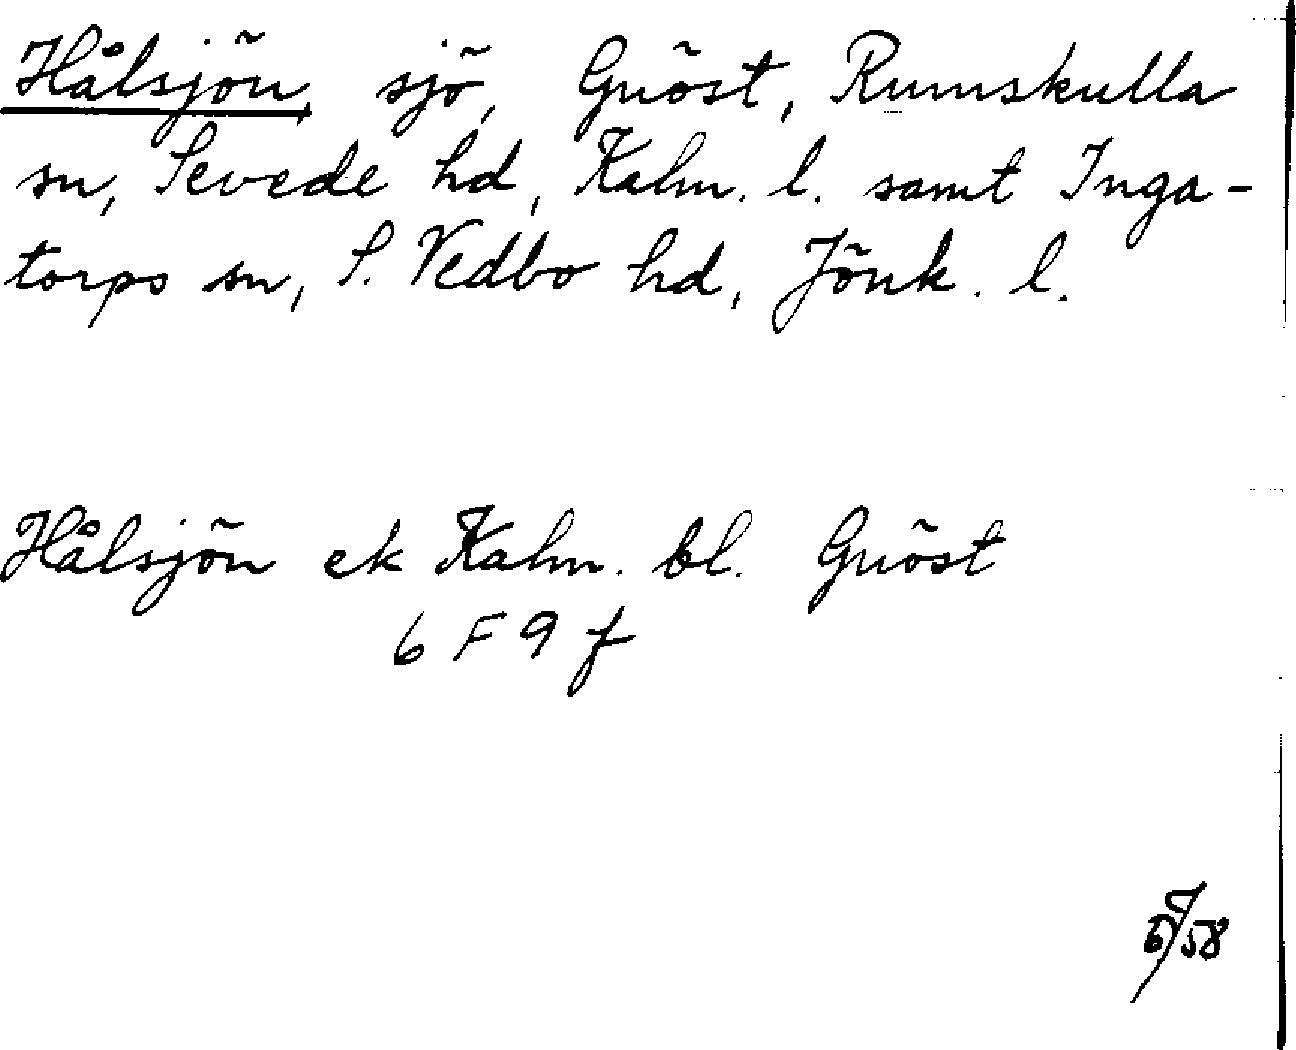 Hålsjön, sjö, Gnöst, Rumskulla
sn, Sevede hd, Kalm. l. samt Inga-
torps sn, S. Vedbo hd, Jönk. l.
Hålsjön ek Kalm. bl. Gnöst
6 F 9 f